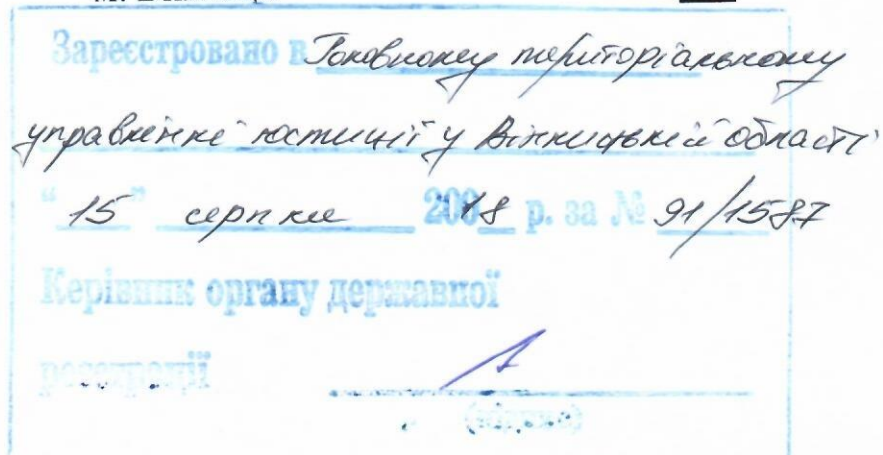 Зареєстровано в Головному територіальному
управлінні юстиції у Вінницькій області
"15" серпня 2018 р. за № 91/1587
Керівник органу державної
реєстрації
(підпис)